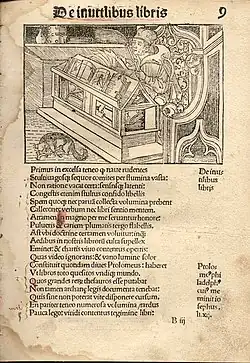 De inutilibus libris
9
Primus in excelsa teneo q naue rudentes
Stultiuagosqȝ sequor comites per flumina vasta:
Non ratione vacat certa: sensuqȝ latenti:
Congestis etenim stultus confido libellis
Spem quoqȝ nec paruā collecta volumina prebent
Calleo nec verbum nec libri sentio mentem.
Attamen magno per me seruantur honore:
Pulueris & cariem plumatis tergo flabellis.
Ast vbi doctrine certamen voluitur: inqȝ
Aedibus in nostris librorū culta supellex
Eminet: & chartis viuo contentus opertis:
Quas video ignorans: & vano lumine solor
Constituit quondam diues Ptolomeus: haberet
Ut libros toto quesitos vndiqȝ mundo.
Quos grandes rerū thesauros esse putabat
Non tamen archanę legis documenta tenebat:
Quis sine non poterat vite disponere cursum.
En pariter teneo numerosa volumina,
Pauca lego: viridi contentus tegmine libri:
De inu
tilibus
libris
Ptolo
meꝰ phi
ladelphꝰ
cuiꝰ me
minit io
sephus
B iij